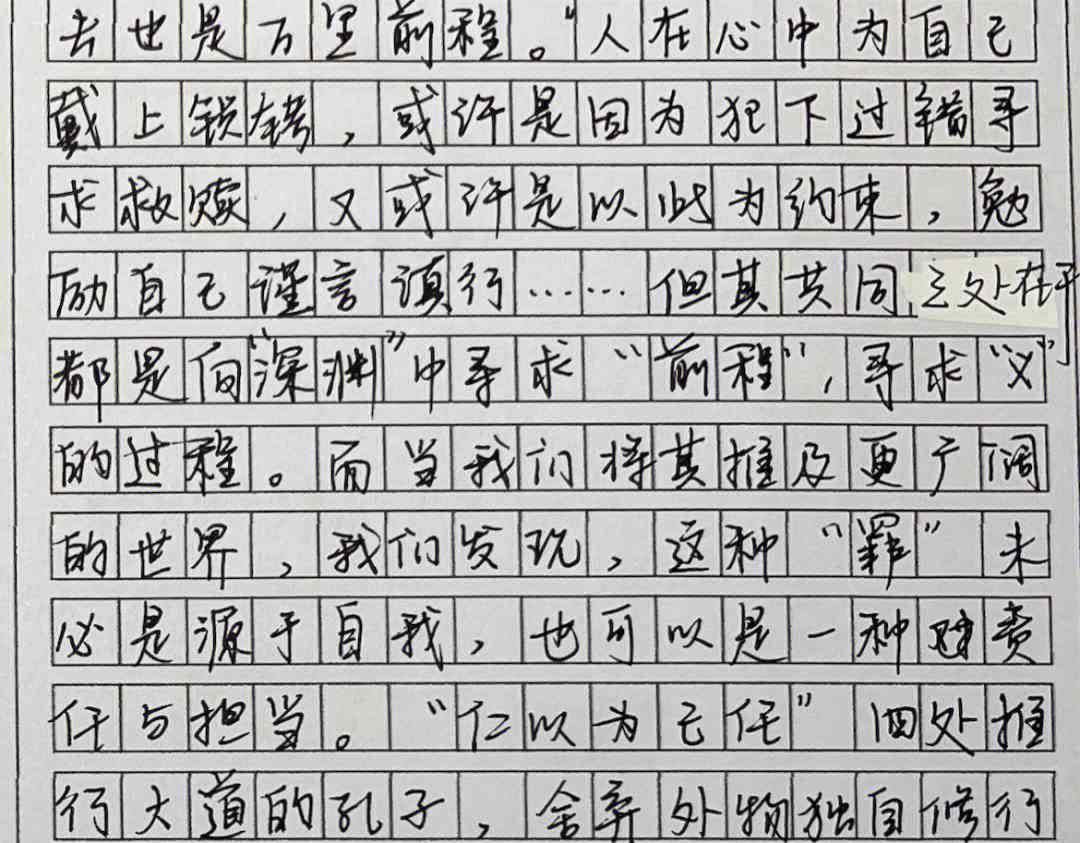 去也是万里前程。”人在心中为自己
戴上锁铐，或许是因为犯下过错寻
求救赎，又或许是以此为约束，勉
励自己谨言慎行……但其共同之处在于
都是向“深渊”中寻求“前程”，寻求“义”
的过程。而当我们将其推及更广阔
的世界，我们发现，这种“罪”未
必是源于自我，也可以是一种责
任与担当。“仁以为己任”四处推
行大道的孔子，舍弃外物独自修行